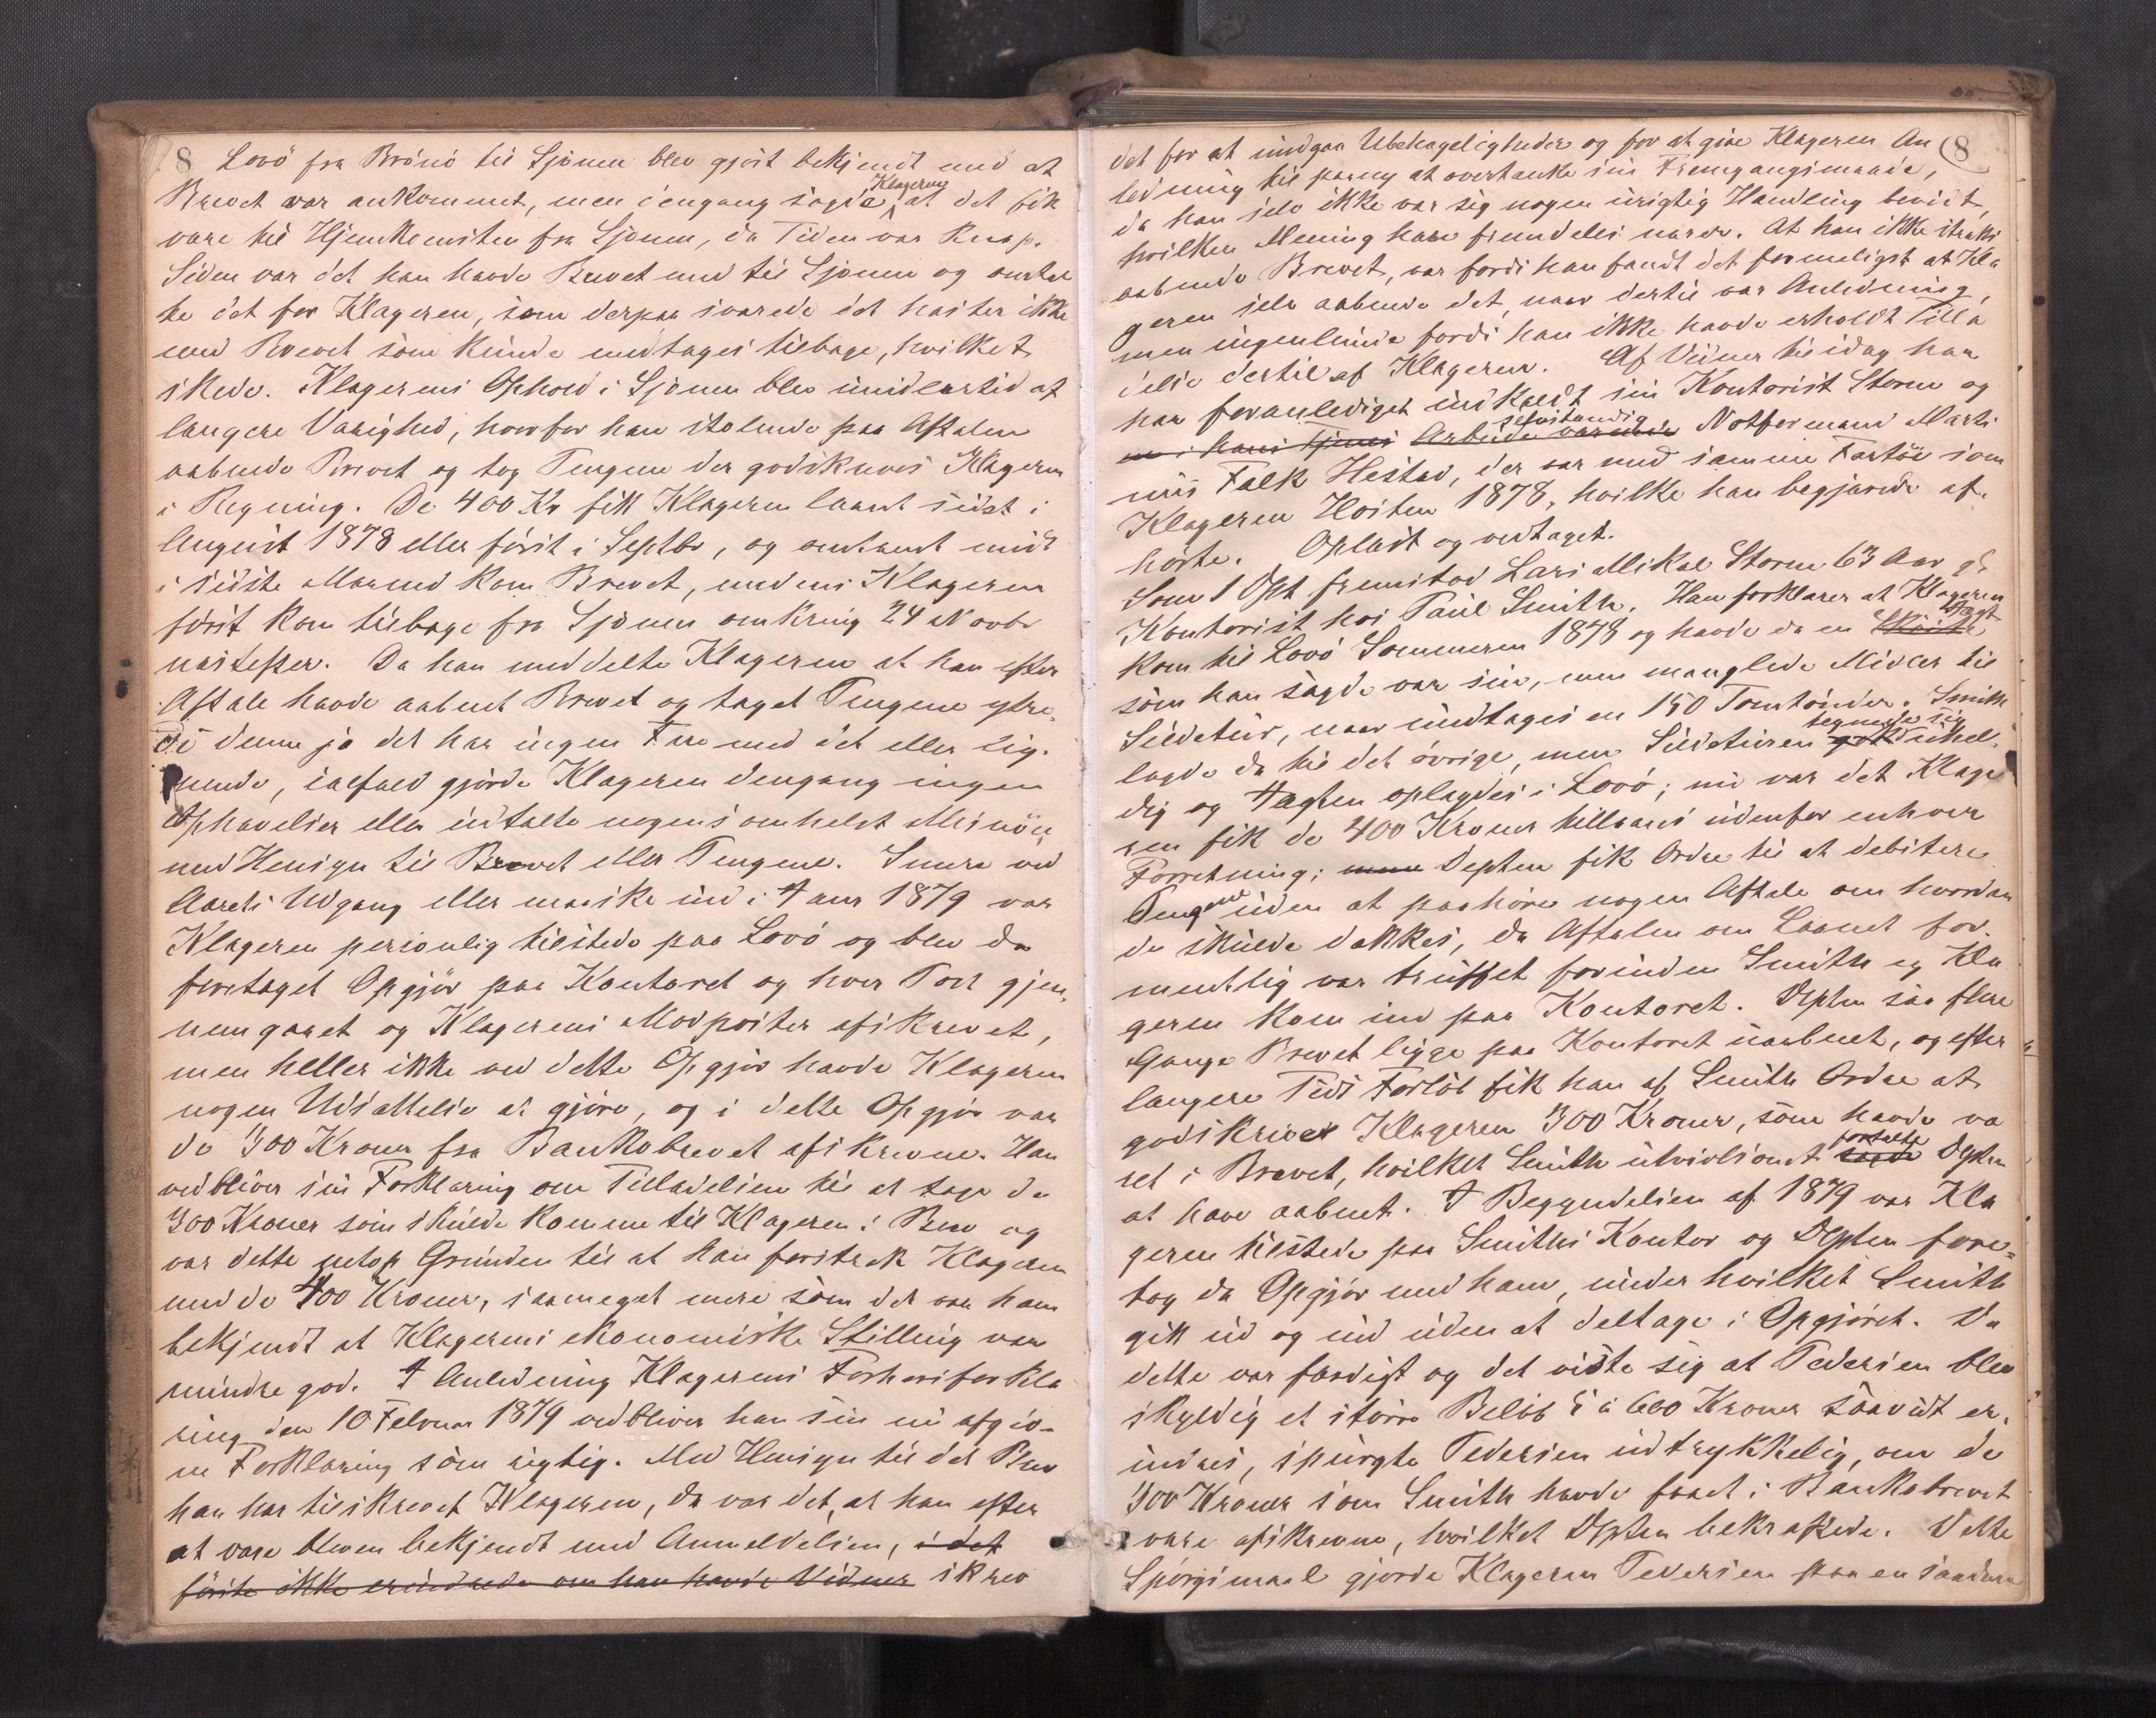 8 Lovö fra Brönö til Sjonen blev gjort bekjendt med at
Brevet var ankommet, men dengang sagde Klageren at det fik
være til Hjemkomsten fra Sjonen, da Tiden var knap.
Siden var det han havde Brevet med til Sjonen og omtal
te det for Klageren, som derpaa svarede det haster ikke
med Brevet som kunde medtages tilbage, hvilket
skede. Klagerens Ophold i Sjonen blev imidlertid af
længere Varighed, hvorfor han stolende paa Aftalen
aabnede Brevet og tog Pengene der godskreves Klageren
i Regning. De 400 Kr fik Klageren laant sidst i
August 1878 eller först i Septbr, og omtrent midt
i sidste Maaned kom Brevet, medens Klageren
först kom tilbage fra Sjonen omkring 24 Novbr
næstefter. Da han meddelte Klageren at han efter
Aftale havde aabnet Brevet og taget Pengene ytre
de denne ja det har ingen Fare med det eller lig-
nende, ialfald gjorde Klageren dengang ingen
Ophævelser eller udtalte nogensomhelst Misnöie
med Hensyn til Brevet eller Pengene. Senere ved
Aarets Udgang eller maaske ind i Janr 1879 var
Klageren personlig tilstede paa Lovö og blev da
foretaget Opgjör paa Kontoret og hver Post gjen-
nemgaaet og Klagerens Modposter afskrevet,
men heller ikke ved dette Opgjör havde Klageren
nogen Udsættelse at gjöre, og i dette Opgjör var
de 300 Kroner fra Bankobrevet afskrevne. Han
vedbliver sin Forklaring om Tilladelsen til at tage de
300 Kroner som skulde komme til Klageren i Brev og
var dette netop Grunden til at han forstrak Klageren
med de 400 Kroner, saameget mere som det var ham
bekjendt at Klagerens ekonomiske Stilling var
mindre god. I Anledning Klagerens Forhörsforkla
ring den 10 Februar 1879 vedbliver han sin nu afgiv-
ne Forklaring som rigtig. Med Hensyn til det Brev
han har tilskrevet Klageren, da var det, at han efter
at være bleven bekjendt med Anmeldelsen, i det
förste ikke erindrede om han havde Vidner skrev
det for at undgaa Ubehageligheder og for at give Klageren An 8
ledning til paany at overtænke sin Fremgangsmaade,
da han selv ikke var sig nogen urigtig Handling bevidst,
hvilken Mening han fremdeles nærer. At han ikke straks
aabnede Brevet, var fordi han fandt det formeligst at Kla
geren selv aabnede det, naar dertil var Anledning,
men ingenlunde fordi han ikke havde erholdt Tilla
delse dertil af Klageren. Af Vidner til idag har
han foranlediget indkaldt sin Kontorist Storm og
en i hans Tjenes Arbeide værende selvstændig Notformand Marti
nus Falk Hestad, der var med samme Fartöi som
Klageren Hösten 1878, hvilke han begjærede af-
hörte. Oplæst og vedtaget.
Som 1 Dpt fremstod Lars Mikal Storm 63 Aar gl
Kontorist hos Paul Smith. Han forklarer at Klageren
kom til Lovö Sommeren 1878 og havde da en Sköite Jagt
som han sagde var sin, men manglede Midler til
Sildetur, naar undtages en 150 Tomtönder. Smith
lagde da til det övrige, men Sildeturen gik tegnede sig uhel-
dig og Jagten oplagdes i Lovö; nu var det Klage
ren fik de 400 Kroner tillaans udenfor enhver
Forretning; men Depten fik Ordre til at debitere
Pengene uden at paahöre nogen Aftale om hvordan
de skulde dækkes, da Aftalen om Laanet for-
mentlig var truffet forinden Smith og Kla
geren kom ind paa Kontoret. Depten saa flere
Gange Brevet ligge paa Kontoret uaabnet, og efter
længere Tids Forlöb fik han af Smith Ordre at
godskrive Klageren 300 Kroner, som havde væ
ret i Brevet, hvilket Smith utvivlsomt sagde fortalte Dpten
at have aabnet. I Begyndelsen af 1879 var Kla
geren tilstede paa Smiths Kontor og Dpten fore-
tog da Opgjör med ham, under hvilket Smith
gik ud og ind uden at deltage i Opgjöret. Da
dette var færdigt og det viste sig at Pedersen blev
skyldig et större Belöb 5 à 600 Kroner saavidt er-
indres, spurgte Pedersen udtrykkelig, om de
300 Kroner som Smith havde faaet i Bankobrevet
vare afskrevne, hvilket Dpten bekræftede. Dette
Spörgsmaal gjorde Klageren Pedersen paa en saadan